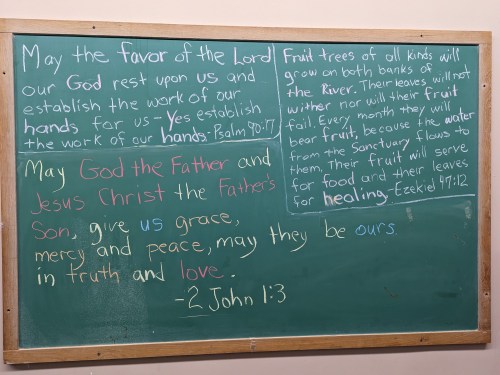 May the favor of the Lord
our God rest upon us and
establish the work of our
hands for us - Yes establish
the work of our hands - Psalm 90:17
Fruit trees of all kinds will
grow on both banks of
the River. Their leaves will not
wither nor will their fruit
fail. Every month they will
bear fruit, because the water
from the Sanctuary flows to
them. Their fruit will serve
for food and their leaves
for healing. - Ezekiel 47:12
May God the Father and
Jesus Christ the Father's
Son, give us grace,
mercy and peace, may they be ours
in truth and love.
-2 John 1:3